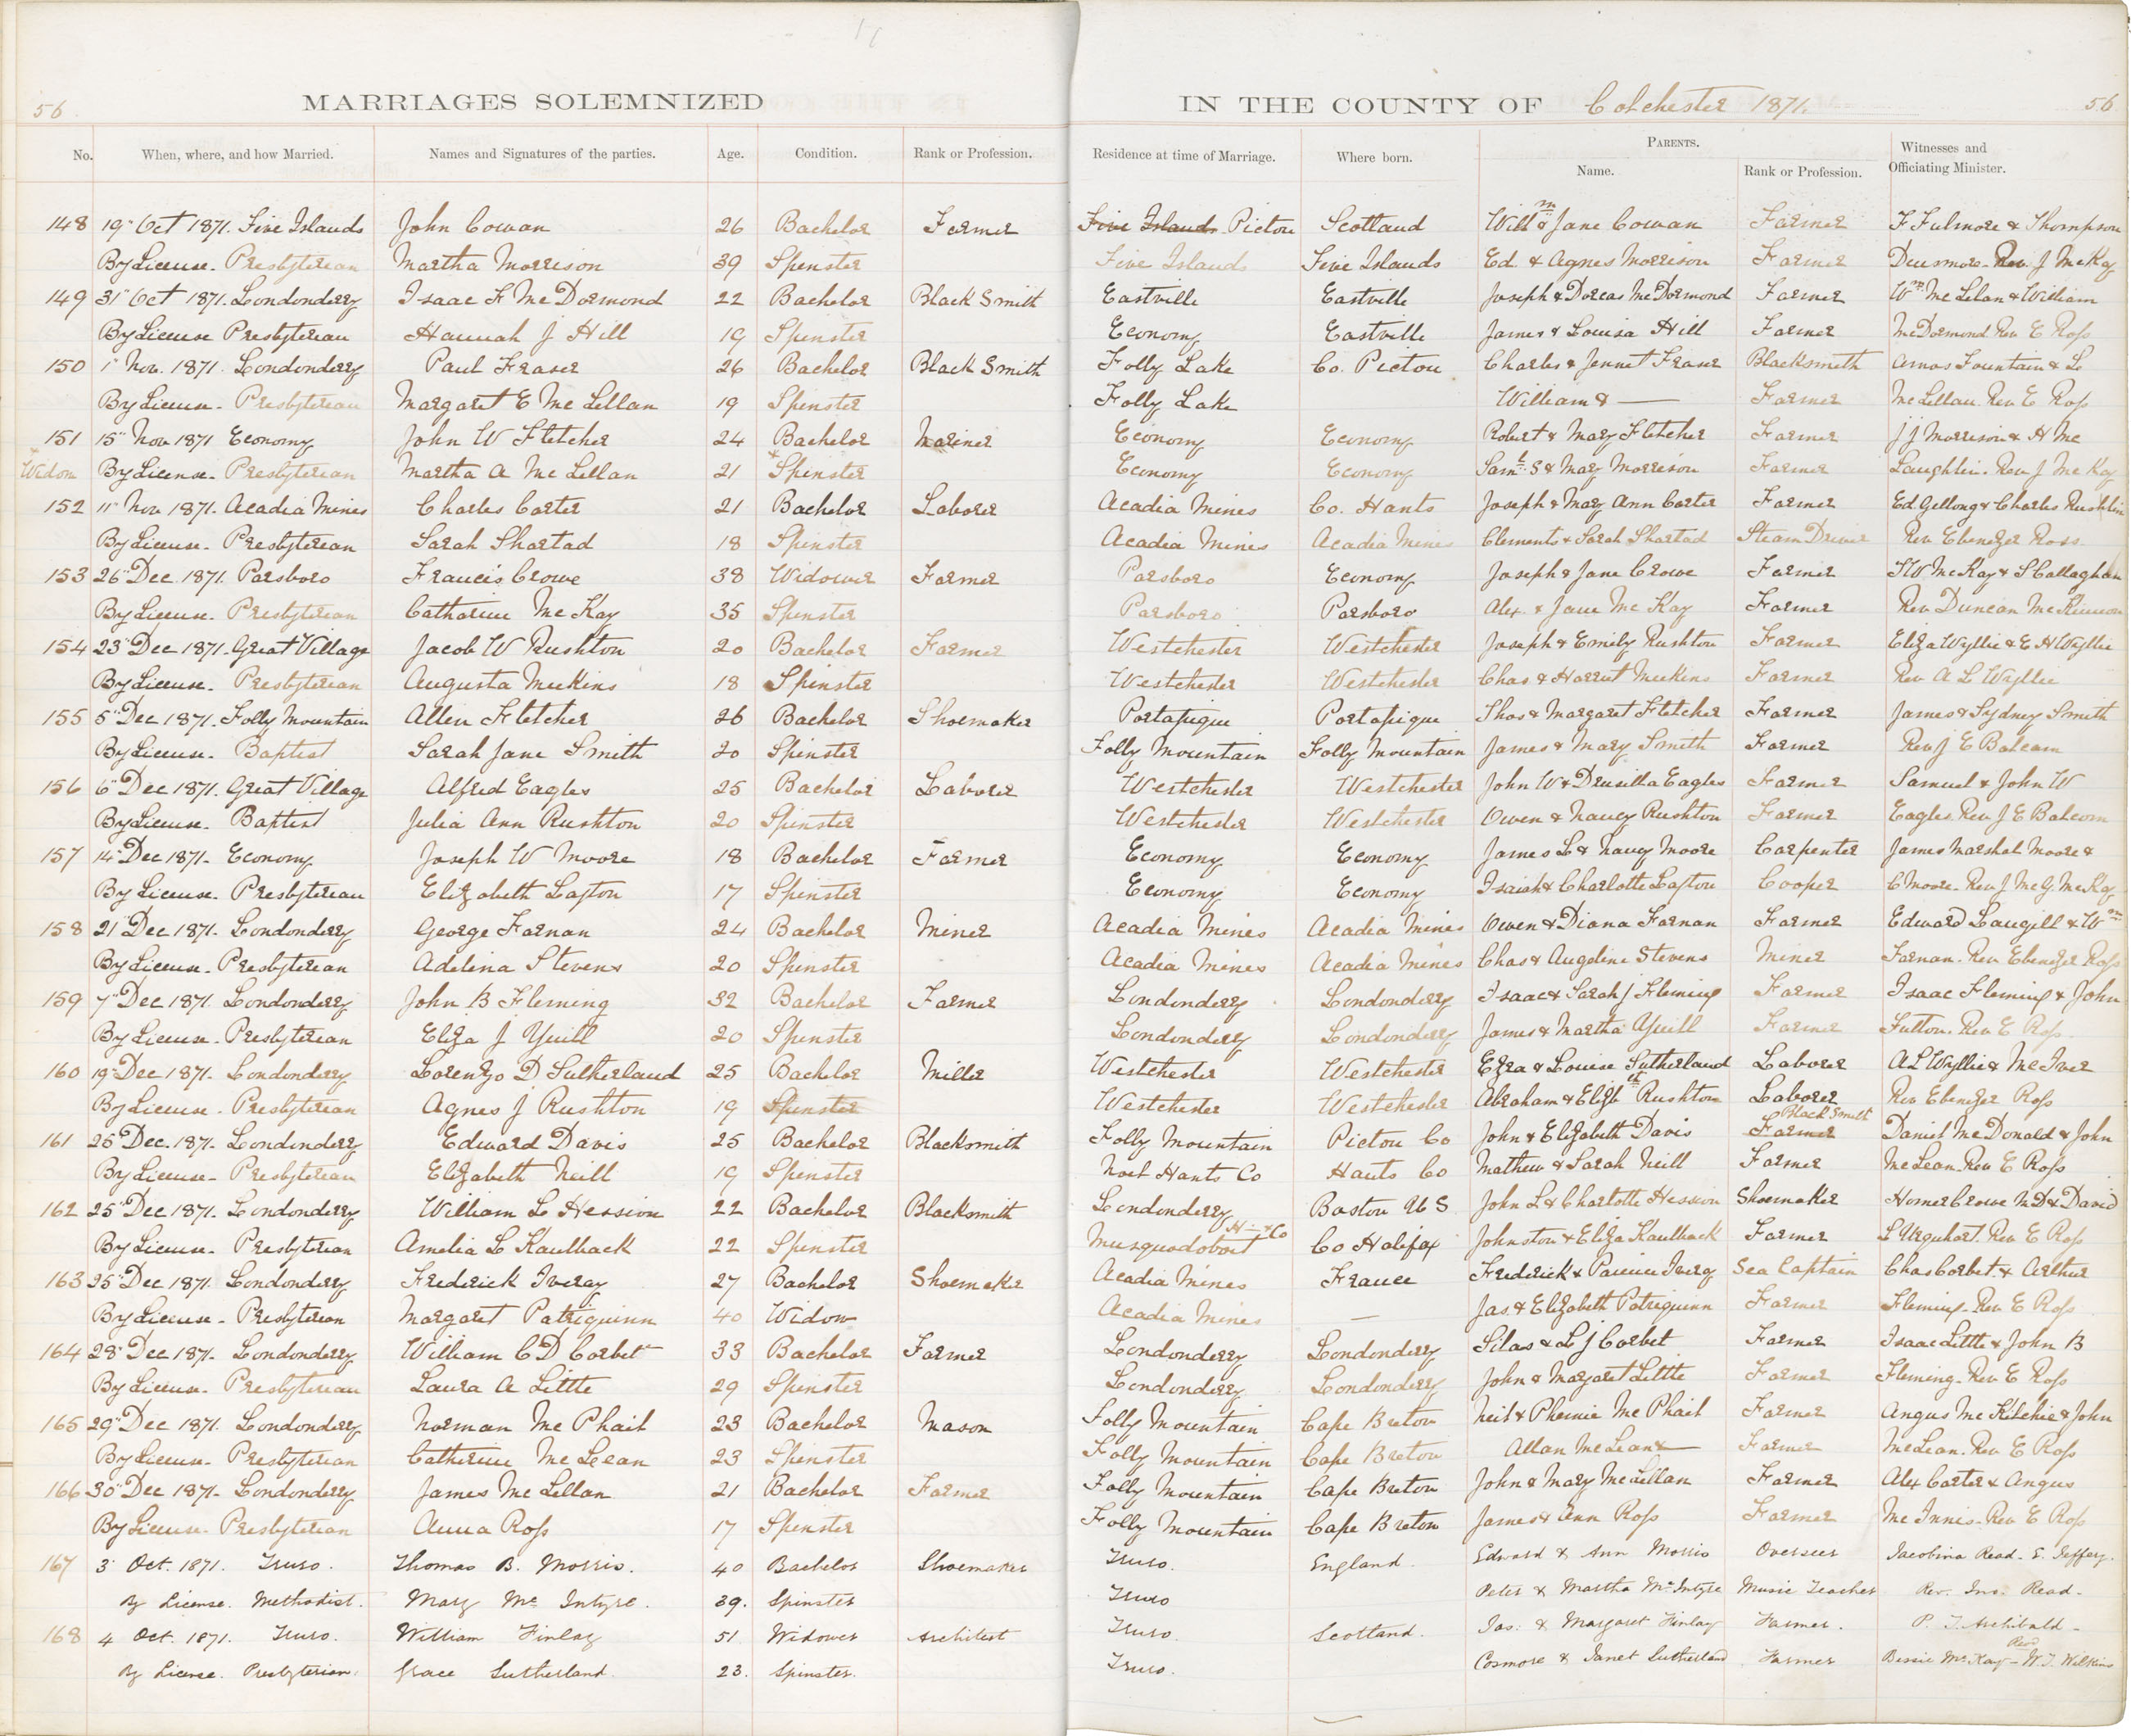 56 MARRIAGES SOLEMNIZED IN THE COUNTY OF Colchester 1871. 56
No. When, where, and how Married. Names and Signatures of the parties. Age. Condition. Rank or Profession. Residence at time of Marriage. Where born. PARENTS. Name. Rank or Profession. Witnesses and Officiating Minister.
148 19" Oct 1871. Five Islands John Cowan 26 Bachelor Farmer Five Islands Pictou Scotland Will m & Jane Cowan Farmer F Fulmore & Thompson
By License. Presbyterian Martha Morrison 39 Spinster Five Islands Five Islands Ed. & Agnes Morrison Farmer Densmore. Rev. J McKay
149 31" Oct 1871. Londonderry Isaac F McDormond 22 Bachelor Black Smith Eastville Eastville Joseph & Dorcas McDormond Farmer Wm McLelan & William
By License Presbyterian Hannah J Hill 19 Spinster Economy Eastville James & Louisa Hill Farmer McDormond Rev E Ross
150 1" Nov. 1871. Londonderry Paul Fraser 26 Bachelor Black Smith Folly Lake Co. Pictou Charles & Jennet Fraser Blacksmith Amos Fountain & L
By License. Presbyterian Margaret E McLellan 19 Spinster Folly Lake William & — Farmer McLellan. Rev E Ross
151 15" Nov 1871 Economy John W Fletcher 24 Bachelor Mariner Economy Economy Robert & Mary Fletcher Farmer J J Morrison & H Mc
Widow By License. Presbyterian Martha A McLellan 21 Spinster Economy Economy Saml. S & Mary Morrison Farmer Laughlin. Rev J McKay
152 11" Nov 1871. Acadia Mines Charles Carter 21 Bachelor Laborer Acadia Mines Co. Hants Joseph & Mary Ann Carter Farmer Ed Gellong & Charles
By License. Presbyterian Sarah Shartad 18 Spinster Acadia Mines Acadia Mines Clements & Sarah Shartad Steam Driver Rev Ebenezer Ross
153 26" Dec. 1871. Parsboro Francis Crowe 38 Widower Farmer Parsboro Economy Joseph & Jane Crowe Farmer McKay & S Callaghan
By License. Presbyterian Catharine McKay 35 Spinster Parsboro Parsboro Alex. & Jane McKay Farmer Rev Duncan McKinnon
154 23" Dec 1871. Great Village Jacob W Rushton 20 Bachelor Farmer Westchester Westchester Joseph & Emily Rushton Farmer Eliza Wyllie & E H Wyllie
By License. Presbyterian Augusta Meekins 18 Spinster Westchester Westchester Chas & Harriet Meekins Farmer Rev A L Wyllie
155 5" Dec 1871. Folly Mountain Allen Fletcher 26 Bachelor Shoemaker Portapique Portapique Thos & Margaret Fletcher Farmer James & Sydney Smith
By License. Baptist Sarah Jane Smith 20 Spinster Folly Mountain Folly Mountain James & Mary Smith Farmer Rev J E Balcam
156 6" Dec 1871. Great Village Alfred Eagles 25 Bachelor Laborer Westchester Westchester John W & Drusilla Eagles Farmer Samuel & John W
By License. Baptist Julia Ann Rushton 20 Spinster Westchester Westchester Owen & Nancy Rushton Farmer Eagles. Rev J E Balcom
157 14" Dec 1871. Economy Joseph W Moore 18 Bachelor Farmer Economy Economy James L & Nancy Moore Carpenter James Marshal Moore &
By License. Presbyterian Elizabeth Layton 17 Spinster Economy Economy Isaiah & Charlotte Layton Cooper C Moore. Rev J McG. McKay
158 21" Dec 1871. Londonderry George Farnan 24 Bachelor Miner Acadia Mines Acadia Mines Owen & Diana Farnan Farmer Edward Laugill & Wm
By License. Presbyterian Adelina Stevens 20 Spinster Acadia Mines Acadia Mines Chas & Angeline Stevens Miner Farnan. Rev Ebenezer Ross
159 7" Dec 1871. Londonderry John B Fleming 32 Bachelor Farmer Londonderry Londonderry Isaac & Sarah J Fleming Farmer Isaac Fleming & John
By License. Presbyterian Eliza J Yuill 20 Spinster Londonderry Londonderry James & Martha Yuill Farmer Fulton. Rev E Ross
160 19" Dec 1871. Londonderry Lorenzo D Sutherland 25 Bachelor Miller Westchester Westchester Ezra & Louise Sutherland Laborer A L Wyllie & McIver
By License. Presbyterian Agnes J Rushton 19 Spinster Westchester Westchester Abraham & Elizbth Rushton Laborer Rev Ebenezer Ross
161 25" Dec. 1871. Londonderry Edward Davis 25 Bachelor Blacksmith Folly Mountain Pictou Co John & Elizabeth Davis Farmer Black Smith Daniel McDonald & John
By License. Presbyterian Elizabeth Neill 19 Spinster Noel Hants Co Hants Co Mathew & Sarah Neill Farmer McLean. Rev E Ross
162 25" Dec 1871. Londonderry William L Hession 22 Bachelor Blacksmith Londonderry Boston U S John L & Charlotte Hession Shoemaker Homer Crowe MD & David
By License. Presbyterian Amelia L Kaulback 22 Spinster Musquodoboit Co Co Halifax Johnston & Eliza Kaulback Farmer L Urquhart. Rev E Ross
163 25" Dec 1871. Londonderry Frederick Iveray 27 Bachelor Shoemaker Acadia Mines France Frederick & Iverg Sea Captain Chas Corbet & Arther
By License. Presbyterian Margaret Patriquinn 40 Widow Acadia Mines — Jas. & Elizabeth Patriquinn Farmer Fleming. Rev E Ross
164 28" Dec 1871. Londonderry William C D Corbet 33 Bachelor Farmer Londonderry Londonderry Silas & L J Corbet Farmer Isaac Little & John B
By License. Presbyterian Laura A Little 29 Spinster Londonderry Londonderry John & Margaret Little Farmer Fleming. Rev E Ross
165 29" Dec 1871. Londonderry Norman McPhail 23 Bachelor Mason Folly Mountain Cape Breton Neil & Phemie McPhail Farmer Angus McRitchie & John
By License. Presbyterian Catherine McLean 23 Spinster Folly Mountain Cape Breton Allan McLean & — Farmer McLean. Rev E Ross
166 30" Dec 1871. Londonderry James McLellan 21 Bachelor Farmer Folly Mountain Cape Breton John & Mary McLellan Farmer Alex Carter & Angus
By License. Presbyterian Anna Ross 17 Spinster Folly Mountain Cape Breton James & Ann Ross Farmer McInnis. Rev E Ross
167 3 Oct. 1871. Truro. Thomas B. Morris. 40 Bachelor Shoemaker Truro. England. Edward & Ann Morris Overseer Jacobina Read. S. Jeffery.
By License. Methodist. Mary McIntyre. 39. Spinster Truro Peter & Martha McIntyre Music Teacher Rev. Jno. Read.
168 4 Oct. 1871. Truro. William Finlay 51 Widower Architect Truro. Scotland. Jas. & Margaret Finlay Farmer. P. J. Archibald.
By License. Presbyterian. Grace Sutherland. 23. Spinster. Truro. Cosmore & Janet Sutherland Farmer Bessie McKay – Revd W. J. Wilkins